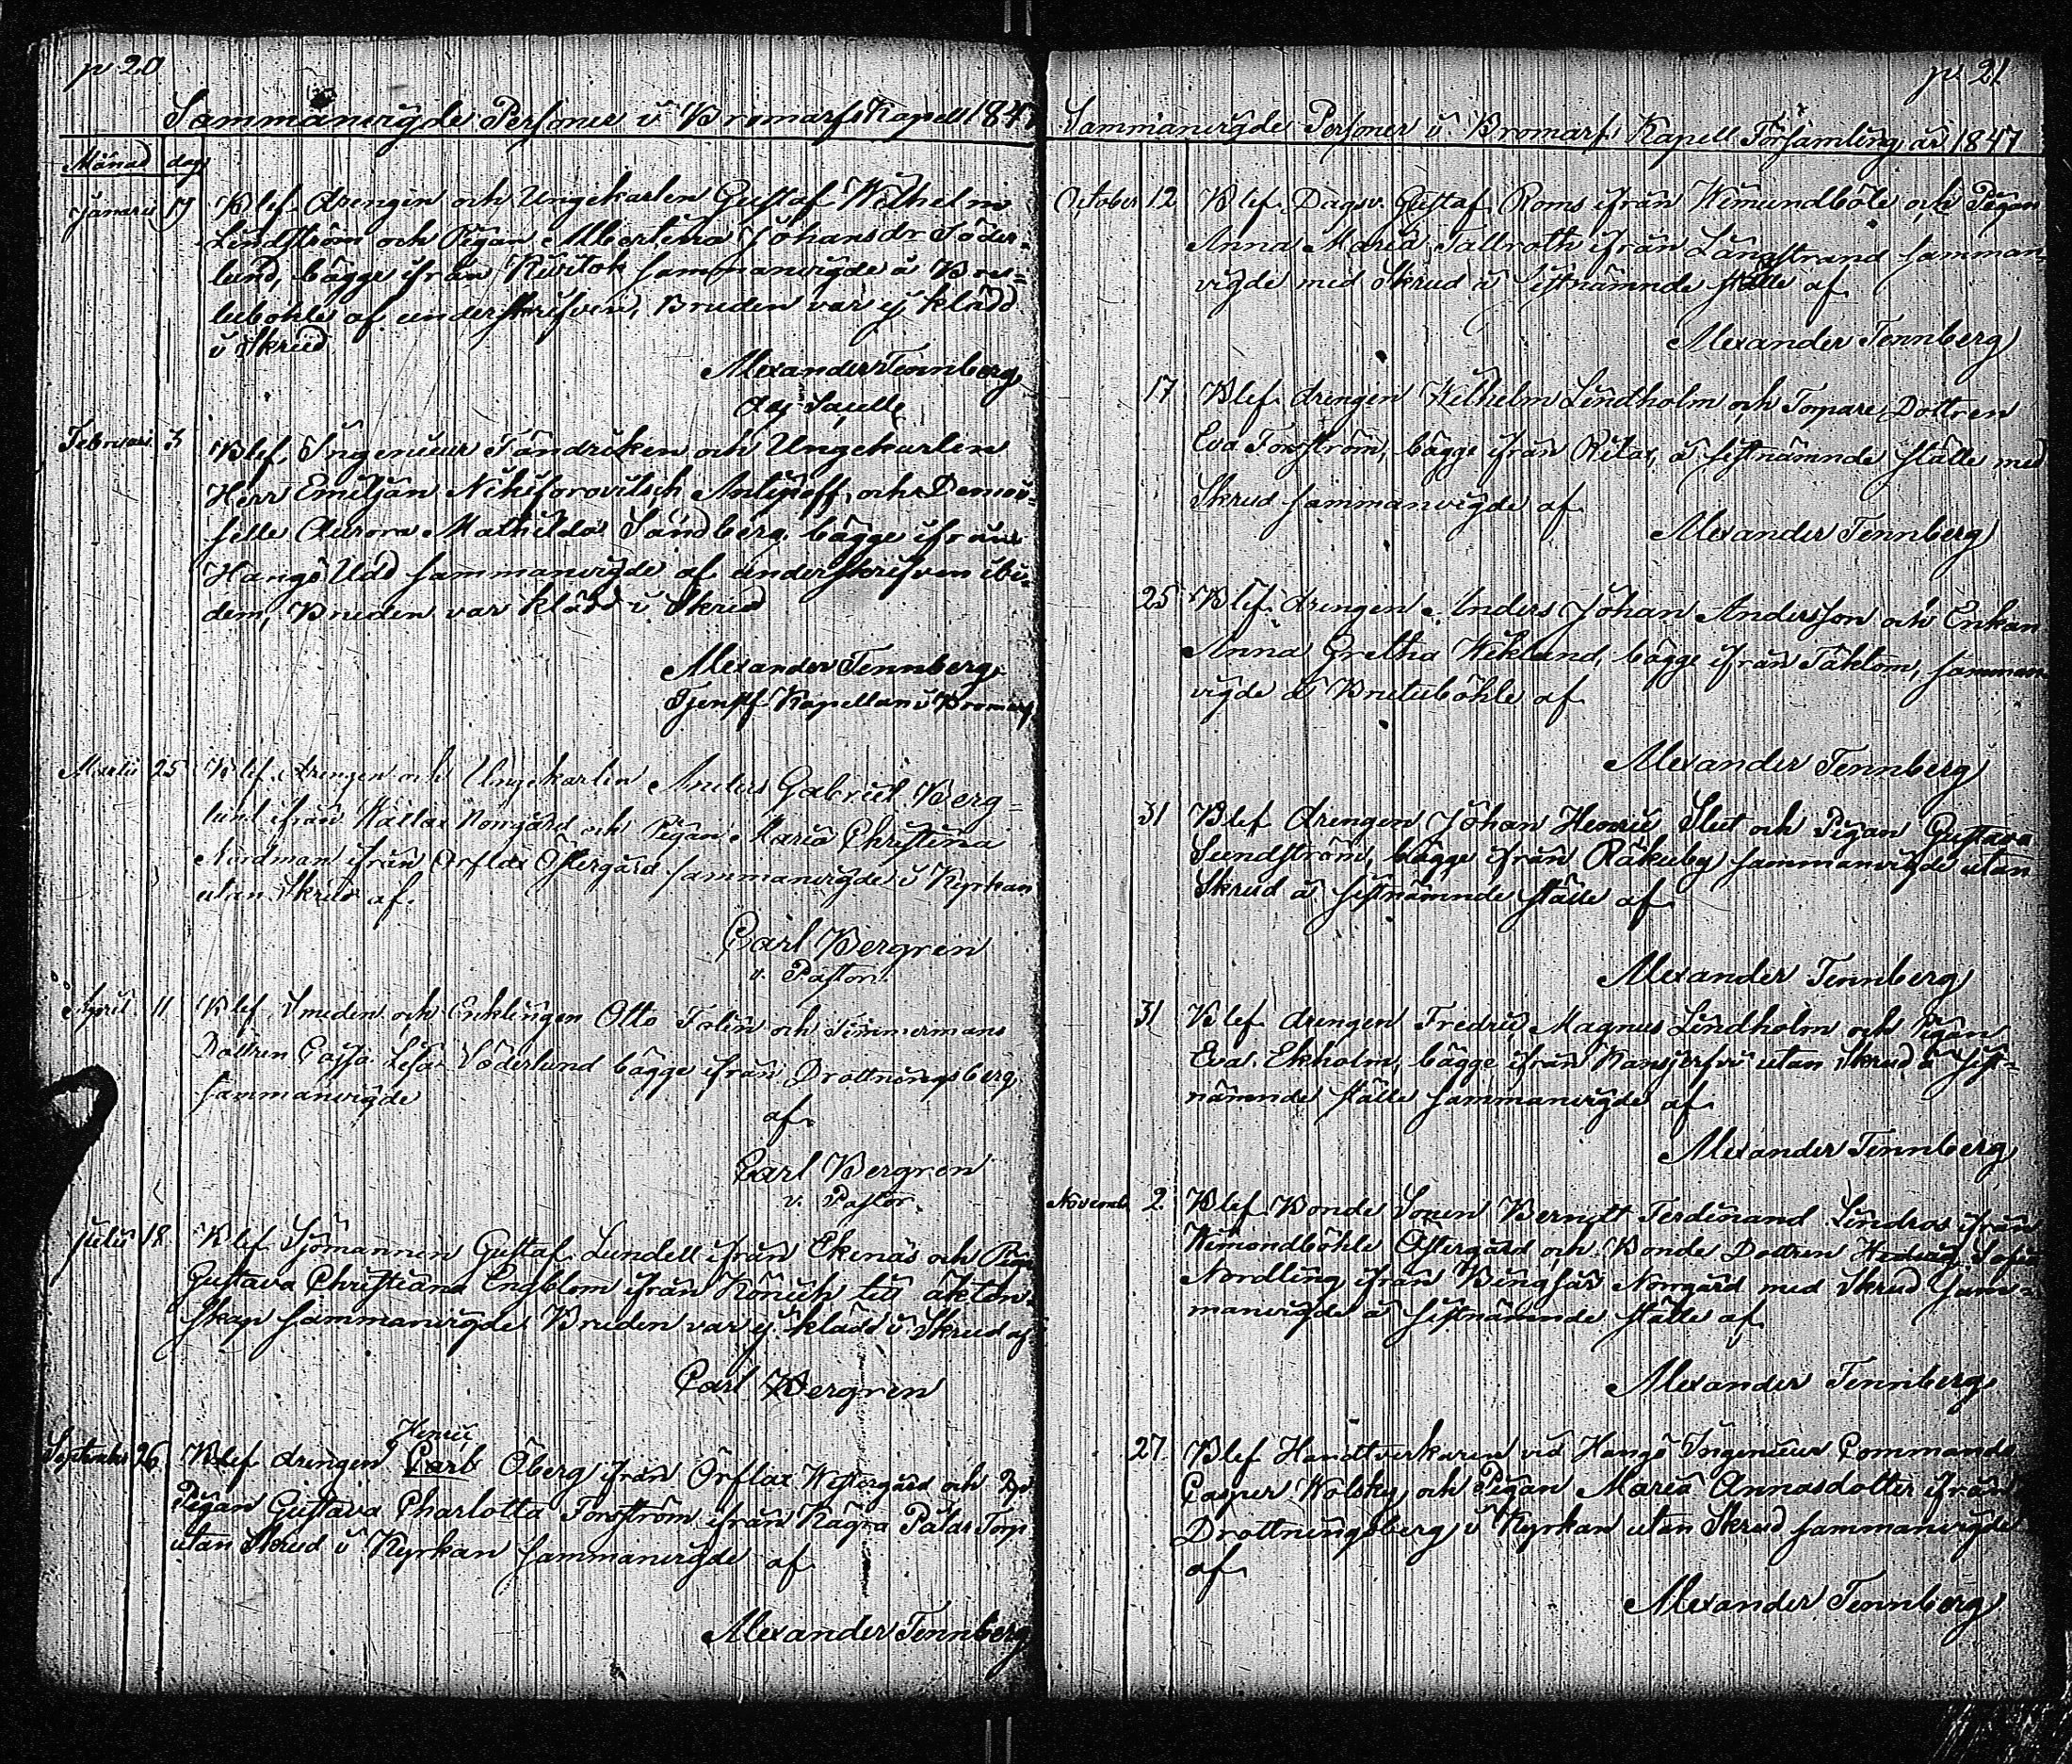 p 20
Sammanvigde Personer i Bromarf Kapell 1847
Månad dag
Januarii 17 Blef drengen och Ungekarlen Gustaf Wilhelm
Lindström och Pigan Albertina Johansdr Söder-
lund, bägge ifrån Rivitok sammanvigde å Bre-
tubohle af underskrifven, Bruden var ej klädd
i Skrud
Alexander Tennberg
Februari 3 Blef Ingenieur Fändricken och Ungekarlen
Herr Emiljan Nikiforovitsch Antipoff och Demoi-
selle Aurora Mathilda Sandberg bägge ifrån
Hangö Udd sammanvigde af underskrifven ibi-
dem, Bruden var klädd i Skrud
Alexander Tennberg
Tjenstf. Kapellan i Bromarf
Martii 25 Blef drengen och Ungekarlen Anders Gabriel Berg-
lund ifrån Källar Norrgård och Pigan Maria Christina
Nordman ifrån Orflax Östergård sammanvigde i Kyrkan
utan Skrud af
Carl Bergren
v. Pastor
April 11 Blef Smeden och Enklingen Otto Talin och Timmermans
Dottren Cajsa Lisa Söderlund bägge ifrån Drottningsberg,
sammanvigde
af
Carl Bergren
v. Pastor.
Julii 18 Blef Sjömannen Gustaf Lundell ifrån Ekenäs och Pigan
Gustava Christiana Engblom ifrån Könich till äkten-
skap sammanvigde Bruden var ej klädd i Skrud af
Carl Bergren
Henric
September 26 Blef drengen Carl Öberg ifrån Orflax Westergård och
Pigan Gustava Charlotta Forsström ifrån Kägra Pålas Torp
utan Skrud i Kyrkan sammanvigde af
Alexander Tennberg
p. 21
Sammanvigde Personer i Bromarf Kapell Församling år 1847
October 12 Blef Dagsv. Gustaf Roms ifrån Wimundböle och Pigan
Anna Maria Tallroth ifrån Långstrand samman-
vigde med Skrud å sistnämnde ställe af
Alexander Tennberg
17 Blef drengen Wilhelm Lindholm och Torpare Dottren
Eva Forsström, bägge ifrån Rilax, å sistnämnde ställe med
Skrud sammanvigde af
Alexander Tennberg
25 Blef drengen Anders Johan Andersson och Enkan
Anna Gretha Wiklund, bägge ifrån Täktom, samman-
vigde å Brutuböhle af
Alexander Tennberg
31 Blef drengen Johan Henric Slut och Pigan Gustava
Sundström, bägge ifrån Räkuby sammanvigde utan
Skrud å sistnämnde ställe af
Alexander Tennberg
31 Blef drengen Fredric Magnus Lindholm och Pigan
Eva Ekholm, bägge ifrån Kansjerfvi utan Skrud å sist-
nämnde ställe sammanvigde af
Alexander Tennberg
Novemb. 2 Blef Bonde Sonen Berndt Ferdinand Lindros ifrån
Wimondböhle Östergård och Bonde Dottren Hedvig Sofia
Nordling ifrån Bingsär Norrgård med Skrud sam-
manvigde å sistnämnde ställe af
Alexander Tennberg
27. Blef Handtverkaren vid Hangö Ingenieur Commando
Casper Wolsky och Pigan Maria Annasdotter ifrån
Drottningsberg i Kyrkan utan Skrud sammanvigde
af
Alexander Tennberg